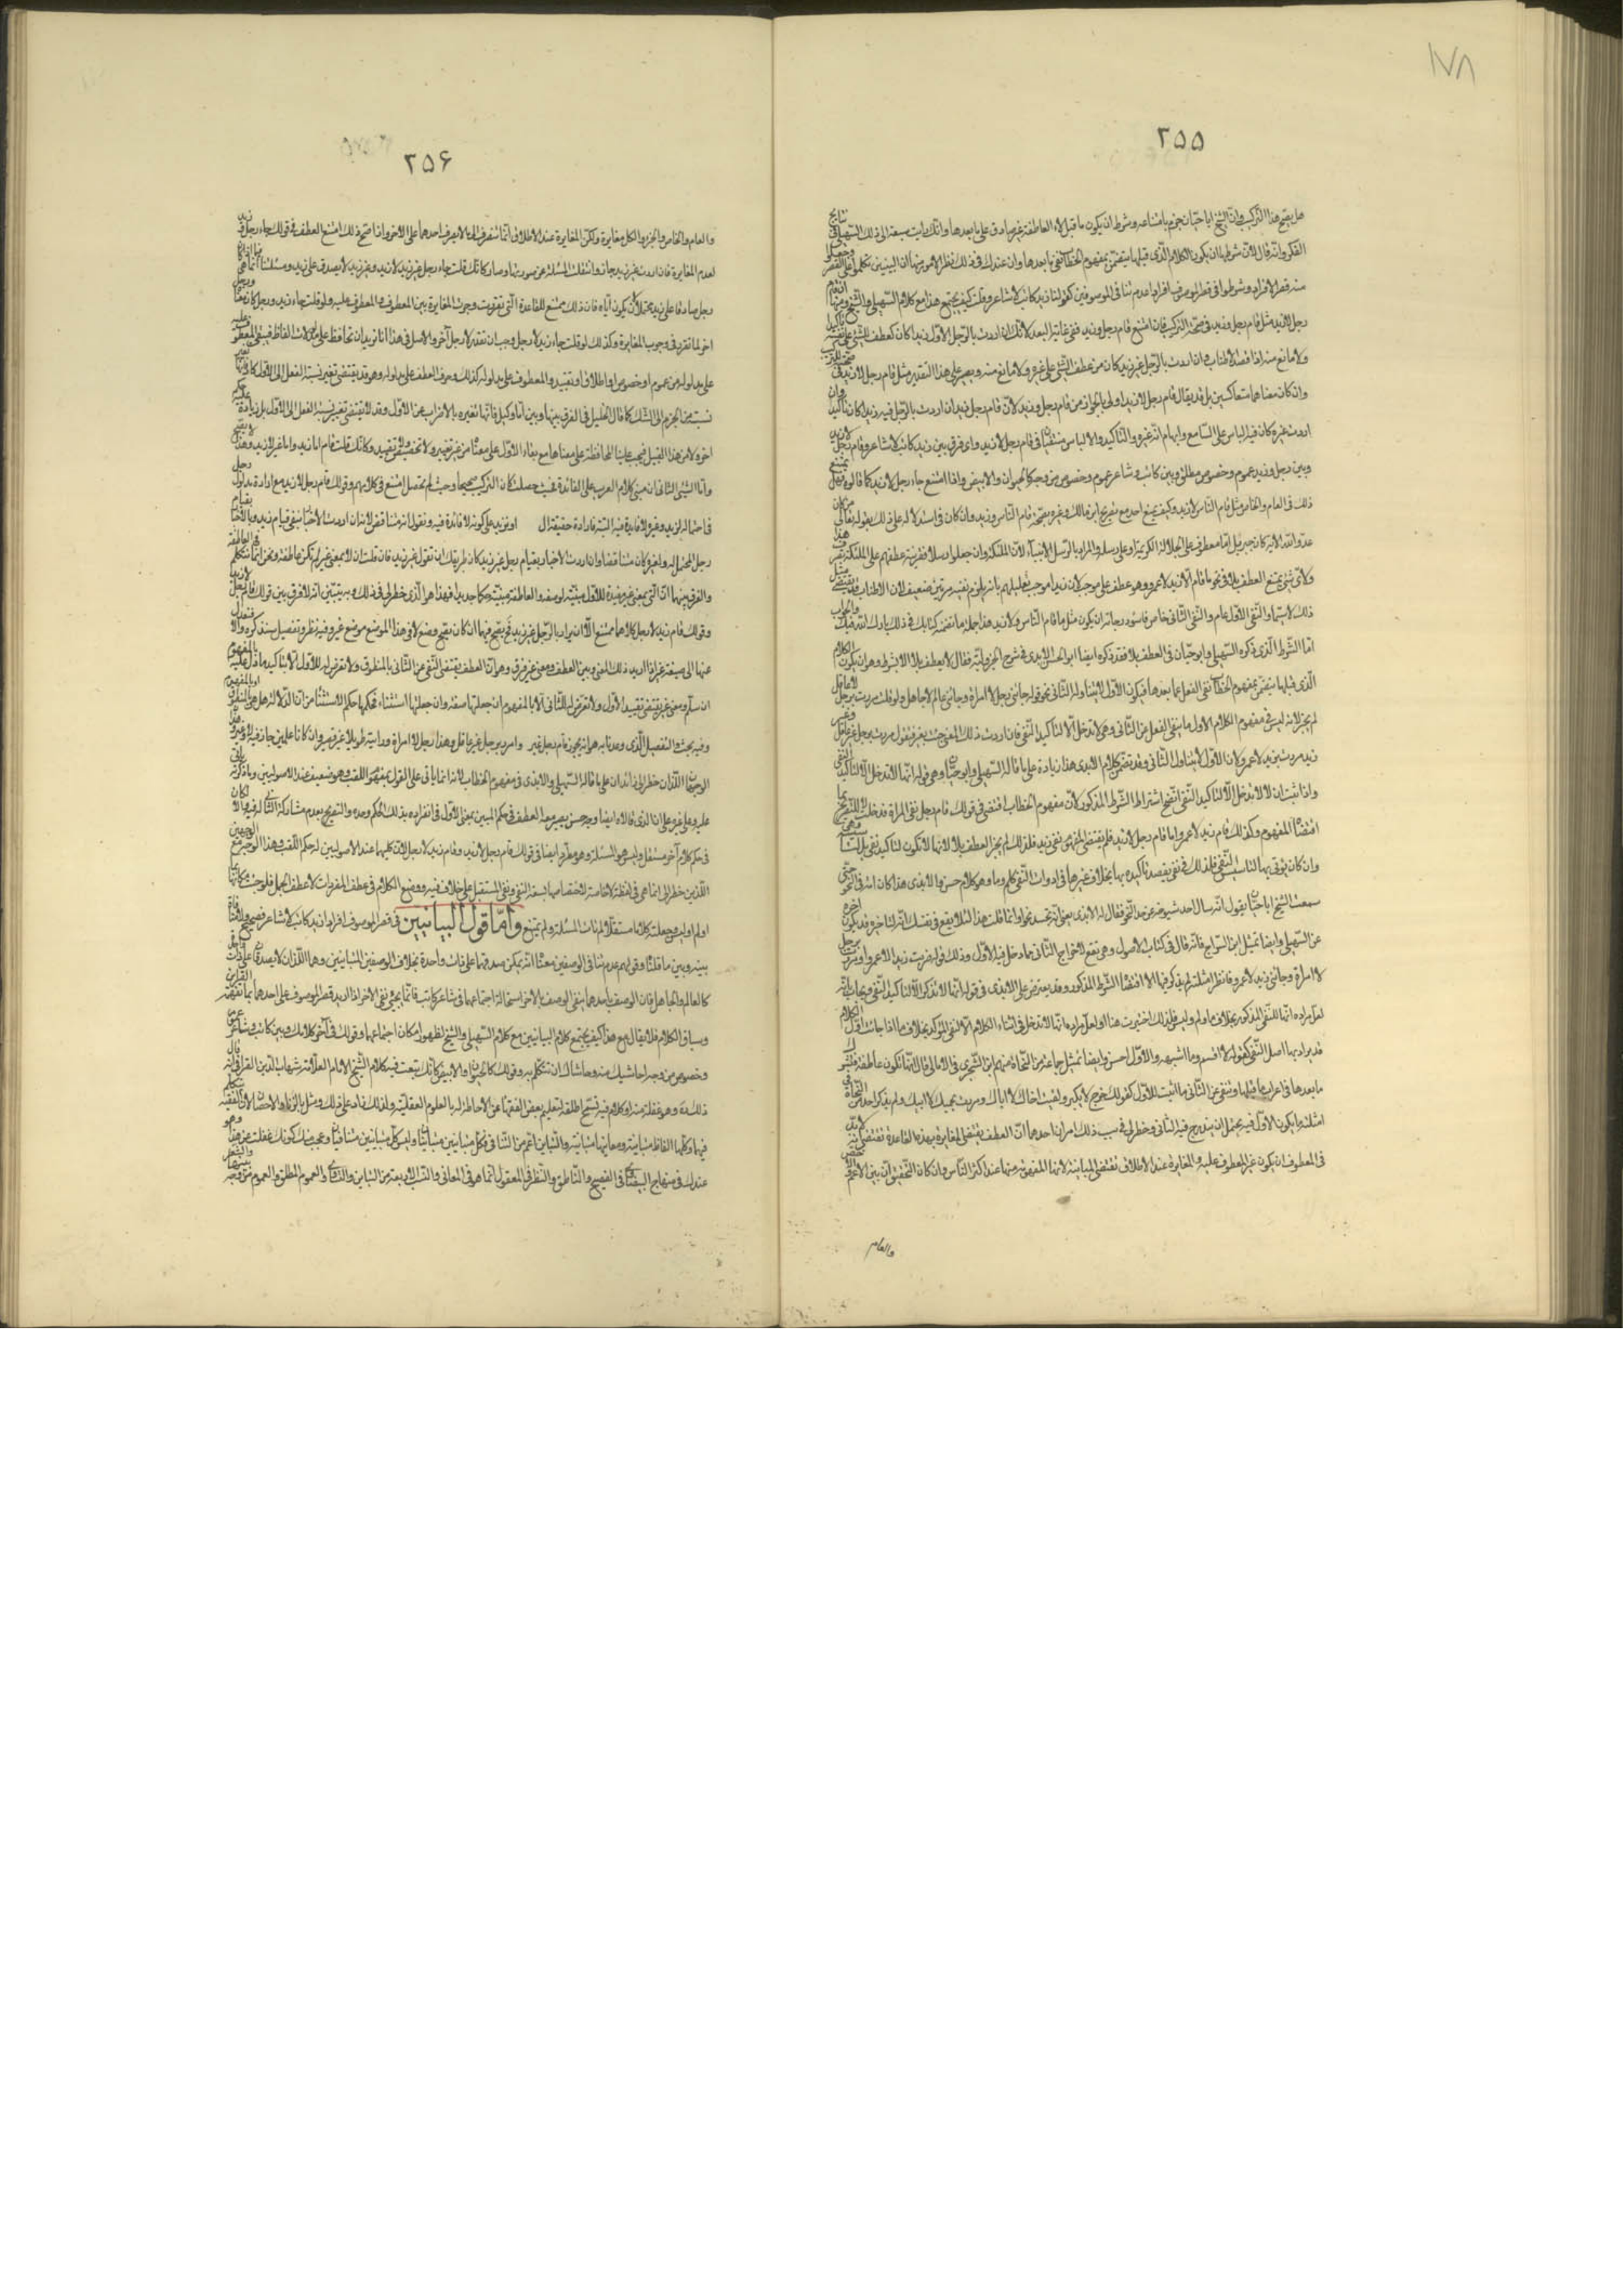 ١٧٨
٢٥٥
هل يصح هذا التركيب وان الشيخ ابا حيان جزم بامتناعه وشرط ان يكون ما قبل لا العاطفة غير صادق على ما بعدها وانك رايت سبقه الى ذلك السهيلى فى نتايج
الفكر وانه قال لان شرطها ان يكون الكلام الذى قبلها يتضمن بمفهوم الخطاب نفى ما بعدها وان عندك فى ذلك نظر الامور منها ان البيانيين تكلموا على القصر وجعلوا
منه قصر الافراد وشرطوا فى قصر الموصوف افرادا عدم تنافى الوصفين كقولنا زيد كاتب لا شاعر وقلت كيف يجتمع هذا مع كلام السهيلى والشيخ ومنها ان قام
رجل لا زيد مثل قام رجل وزيد فى صحة التركيب فان امتنع قام رجل وزيد ففى غاية البعد لانك ان اردت بالرجل الاول زيدا كان كعطف الشئ على نفسه تاكيدا
ولا مانع منه اذا قصد الاطناب وان اردت بالرجل غير زيد كان من عطف الشئ على غيره ولا مانع منه ويصير على هذا التقدير مثل قام رجل لا زيد فى صحة التركيب
وان كان معناهما متعاكسين بل قد يقال قام رجل لا زيد اولى بالجواز من قام رجل وزيد لان قام رجل وزيد ان اردت بالرجل فيه زيدا كان تاكيدا وان
اردت غيره كان فيه الباس على السامع وايهام انه غيره والتاكيد والالباس منتفيان فى قام رجل لا زيد واى فرق بين زيد كاتب لا شاعر وقام رجل لا زيد
وبين رجل وزيد عموم وخصوص مطلق وبين كاتب وشاعر عموم وخصوص من وجه كالحيوان والابيض واذا امتنع جاء رجل لا زيد كما قالوه فهل يمتنع
ذلك فى العام والخاص مثل قام الناس لا زيد وكيف يمنع احد مع تصريح ابن مالك وغيره بصحة قام الناس وزيد وان كان فى استدلاله على ذلك بقوله تعالى من كان
عدوا لله الاية كان جبريل اما معطوف على الجلالة الكريمة او على رسله والمراد بالرسل الانبيآء لان الملئكة وان جعلوا رسلا فقرينة عطفهم على الملئكة تصرف هذا
ولاى شئ يمتنع العطف بلا فى نحو ما قام الا زيد لا عمرو وهو عطف على موجب لان زيدا موجب وتعليلهم بانه يلزم نفيه مرتين ضعيف لان الاطناب قد يقتضى مثل
ذلك لا سيما والنفى الاول عام والنفى الثانى خاص فاسوء درجاته ان يكون مثل ما قام الناس ولا زيد هذا جملة ما تضمنه كتابك فى ذلك بارك الله فيك والجواب
اما الشرط الذى ذكره السهيلى وابو حيان فى العطف بلا فقد ذكره ايضا ابو الحسن الابدى فى شرح الجزولية فقال لا يعطف بلا الا بشرط وهو ان يكون الكلام
الذى قبلها يتضمن بمفهوم الخطاب نفى الفعل عما بعدها فيكون الاول لا يتناول الثانى نحو قوله جاءنى رجل لا امراة وجاءنى عالم لا جاهل ولو قلت مررت برجل لا عاقل
لم يجز لانه ليس فى مفهوم الكلام الاول ما ينفى الفعل عن الثانى وهى لا تدخل الا لتاكيد النفى فان اردت ذلك المعنى جئت بغير فتقول مررت برجل غير عاقل وغير
زيد ومررت بزيد لا عمرو لان الاول لا يتناول الثانى وقد تضمن كلام الابدى هذا زيادة على ما قاله السهيلى وابو حيان وهى قوله انها لا تدخل الا لتاكيد النفى
واذا ثبت ان لا لا تدخل الا لتاكيد النفى اتضح اشتراط الشرط المذكور لان مفهوم الخطاب اقتضى فى قولك قام رجل نفى المراة فدخلت لا للتصريح بما
اقتضاه المفهوم وكذلك قام زيد لا عمرو اما قام رجل لا زيد فلم يقتض المفهوم نفى زيد فلذلك لم يجز العطف بلا لانها لا تكون لتاكيد نفى بل لتاسيسه وهى
وان كان يؤتى بها لتاسيس النفى فكذلك فى نفى يقصد تاكيده بها بخلاف غيرها من ادوات النفى كلم وما وهو كلام حسن والابدى هذا كان امة فى النحو حتى
سمعت الشيخ ابا حيان يقول انه سال احد شيوخه عن حد النحو فقال له الابدى يعنى انه تجسد نحوا وانما قلت هذا لئلا يقع فى نفسك انه لتاخره قد يكون اخذه
عن السهيلى وايضا تمثيل ابن السراج فانه قال فى كتاب الاصول وهى تقع لاخراج الثانى مما دخل فيه الاول وذلك قولك ضربت زيدا لا عمرا ومررت برجل
لا امراة وجاءنى زيد لا عمرو فانظر امثلته لم يذكر فيها الا ما اقتضاه الشرط المذكور وقد يعترض على الابدى فى قوله انها لا تذكر الا لتاكيد النفى ويجاب بانه
لعل مراده انها للنفى المذكور بخلاف ما ولم وليس فلذلك اختيرت هنا او لعل مراده انها لا تدخل فى اثناء الكلام الا للنفى المؤكد بخلاف ما اذا جاءت اول الكلام
قد يراد بها اصل النفى كقوله لا اقسم وما اشبهه والاول احسن وايضا تمثيل جماعة من النحاة منهم ابن الشجرى فى الامالى قال انها تكون عاطفة فتشرك
ما بعدها فى اعراب ما قبلها وتنفى عن الثانى ما اثبت للاول كقولك خرج لا بكر ولقيت اخاك لا اباك ومررت بحميك لا ابيك ولم يذكر احد من النحاة فى
امثلته ما يكون الاول فيه يحتمل ان يندرج فيه الثانى وخطر لى فى سبب ذلك امران احدهما ان العطف يقتضى المغايرة بهذه القاعدة تقتضى انه لابد
فى المعطوف ان يكون غير المعطوف عليه والمغايرة عند الاطلاق تقتضى المباينة لانها المفهوم منها عند اكثر الناس وان كان التحقيق ان بين الاعم والاخص
والعام
٢٥۶
والعام والخاص والجزء والكل مغايرة ولكن المغايرة عند الاطلاق انما تنصرف الى ما لا يصدق احدهما على الاخر واذا صح ذلك امتنع العطف فى قولك جاء رجل وزيد
لعدم المغايرة فان اردت غير زيد جاز وانتقلت المسئلة عن صورتها وصار كانك قلت جاء رجل غير زيد لا زيد وغير زيد لا يصدق على زيد ومسئلتنا انما هى فيما اذا كان
رجل صادقا على زيد محتملا لان يكون اياه فان ذلك ممتنع للقاعدة التى تقررت وجوب المغايرة بين المعطوف والمعطوف عليه ولو قلت جاء زيد ورجل كان معناه ورجل
اخر لما تقرر فى وجوب المغايرة وكذلك لو قلت جاء زيد لا رجل وجب ان تقدر لا رجل آخر والاصل فى هذا انا نريد ان نحافظ على مدلولات الالفاظ فيبقى المعطوف عليه
على مدلوله من عموم او خصوص او اطلاق او تقييد والمعطوف على مدلوله كذلك وحرف العطف على مدلوله وهو قد يقتضى تغيير نسبة الفعل الى الاول كاو فانها تغير
نسبته من الجزم الى الشك كما قال الخليل فى الفرق بينها وبين اما وكبل فانها تغيره بالاضراب عن الاول وقد لا يقتضى تغيير نسبة الفعل الى الاول بل زيادة عليه حكم
اخر ولا من هذا القبيل فيجب علينا المحافظة على معناها مع بقاء الاول على معناه من غير تغيير ولا تخصيص ولا تقييد وكانك قلت قام اما زيد واما غيره لا زيد وهذا لا يصح
واما الشئ الثانى ان مبنى كلام العرب على الفائدة فحيث حصلت كان التركيب صحيحا وحيث لم تحصل امتنع فى كلامهم وقولك قام رجل لا زيد مع ارادة مدلول رجل
فى احتماله لزيد وغيره لا فايدة فيه
رجل المحتمل له ولغيره كان متناقضا وان اردت الاخبار بقيام رجل غير زيد كان طريقك ان تقول غير زيد فان قلت ان لا بمعنى غير لم تكن عاطفة ونحن انما نتكلم فى العاطفة
والفرق بينهما ان التى بمعنى غير مقيدة للاول مبينة لوصفه والعاطفة مثبتة حكما جديدا لغيره فهذا هو الذى خطر لى فى ذلك وبه يتبين انه لا فرق بين قولك قام رجل لا زيد
وقولك قام زيد لا رجل كلاهما ممتنع الا ان يراد بالرجل غير زيد فحينئذ يصح فيهما ان كان يصح وضع لا فى هذا الموضع موضع غير وفيه نظر وتفصيل سنذكره والا فنعدل
عنها الى صيغة غير اذا اريد ذلك المعنى وبين العطف ومعنى غير فرق وهو ان العطف يقتضى النفى عن الثانى بالمنطوق ولا تعرض له للاول الا بتاكيد ما دل عليه بالمفهوم
ان سلم ومعنى غير يقتضى تقييد الاول ولا تعرض له للثانى الا بالمفهوم ان جعلتها صفة وان جعلتها استثناء فحكمها حكم الاستثناء من ان الدلالة هل هى بالمنطوق او بالمفهوم
وفيه بحث والتفصيل الذى وعدنا به هو انه يجوز قام رجل غير وامرر برجل غير عاقل وهذا رجل لا امراة ورايت طويلا لا قصيرا وان كانا علمين جاز فيه لا وغير وهذان
الوجهان اللذان خطرا لى زائدان على ما قاله السهيلى والابدى من مفهوم الخطاب لانه انما ياتى على القول بمفهوم اللقب وهو ضعيف عند الاصوليين وما ذكرته ياتى
عليه وعلى غيره على ان الذى قالاه ايضا وجه حسن يصير معه العطف فى حكم المبين لمعنى الاول من انفراده بذلك الحكم وحده والتصريح بعدم مشاركة الثانى له فيه والا لكان
فى حكم كلام آخر مستقل وليس هو المسئلة وهو مطرد ايضا فى قولك قام رجل لا زيد وقام زيد لا رجل لان كليهما عند الاصوليين له حكم اللقب وهذا الوجه مع الوجهين
اللذين خطرا لى انما هى فى لفظة لا خاصة لاختصاصها بسعة النفى ونفى المستقبل على خلاف فيه ووضع الكلام فى عطف المفردات لا عطف الجمل فلو جئت مكانها بما
او لم او ليس وجعلته كلاما مستقلا لم تات المسئلة ولم يمتنع واما قول البيانيين فى قصر الموصوف افرادا زيد كاتب لا شاعر فصحيح ولا منافاة
بينه وبين ما قلناه وقولهم عدم تنافى الوصفين معناه انه يمكن صدقهما على ذات واحدة بخلاف الوصفين المتباينين وهما اللذان لا يصدقان على ذات واحدة
كالعالم والجاهل فان الوصف باحدهما ينفى الوصف بالاخر لاستحالة اجتماعهما فى شاعر كاتب فانما يجئ نفى الاخر اذا اريد قصر الموصوف على احدهما بما تفهمه القراين
وسياق الكلام فلا يقال مع هذا كيف يجتمع كلام البيانيين مع كلام السهيلى والشيخ لظهور امكان اجتماعهما وقولك فى آخر كلامك وبين كاتب وشاعر عموم
وخصوص من وجه احاشيك منه وحاشاك ان تتكلم به وقولك كالحيوان والابيض كانك تبعت فيه كلام الشيخ الامام العلامة شهاب الدين القرافى فانه قال
ذلك رحمه الله وهو غفلة منه او كلام فيه تسمح اطلقه لتعليم بعض الفقهاء ممن لا احاطة له بالعلوم العقلية ولذلك زاد على ذلك ومثل بالزنا والاحصان لان الفقيه يتكلم
فيهما وكلها الفاظ متباينة ومعانيها متباينة والتباين اعم من التنافى فكل متنافيين متباينان وليس كل متباينين متنافيان وعجبت منك كونك غفلت عن هذا وهو
عندك فى منهاج البيضاوى فى الفصيح والناطق والنظر فى المعقول انما هو فى المعانى والنسب الاربعة من التباين والتساوى والعموم المطلق والعموم من وجه